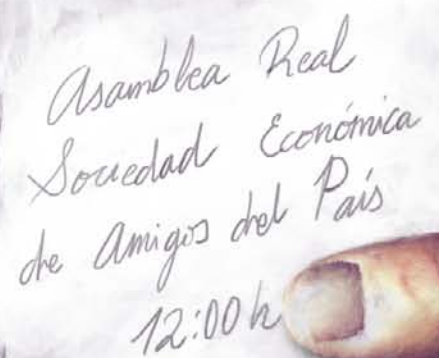 Asamblea Real
Sociedad Económica
de Amigos del País
12:00 h